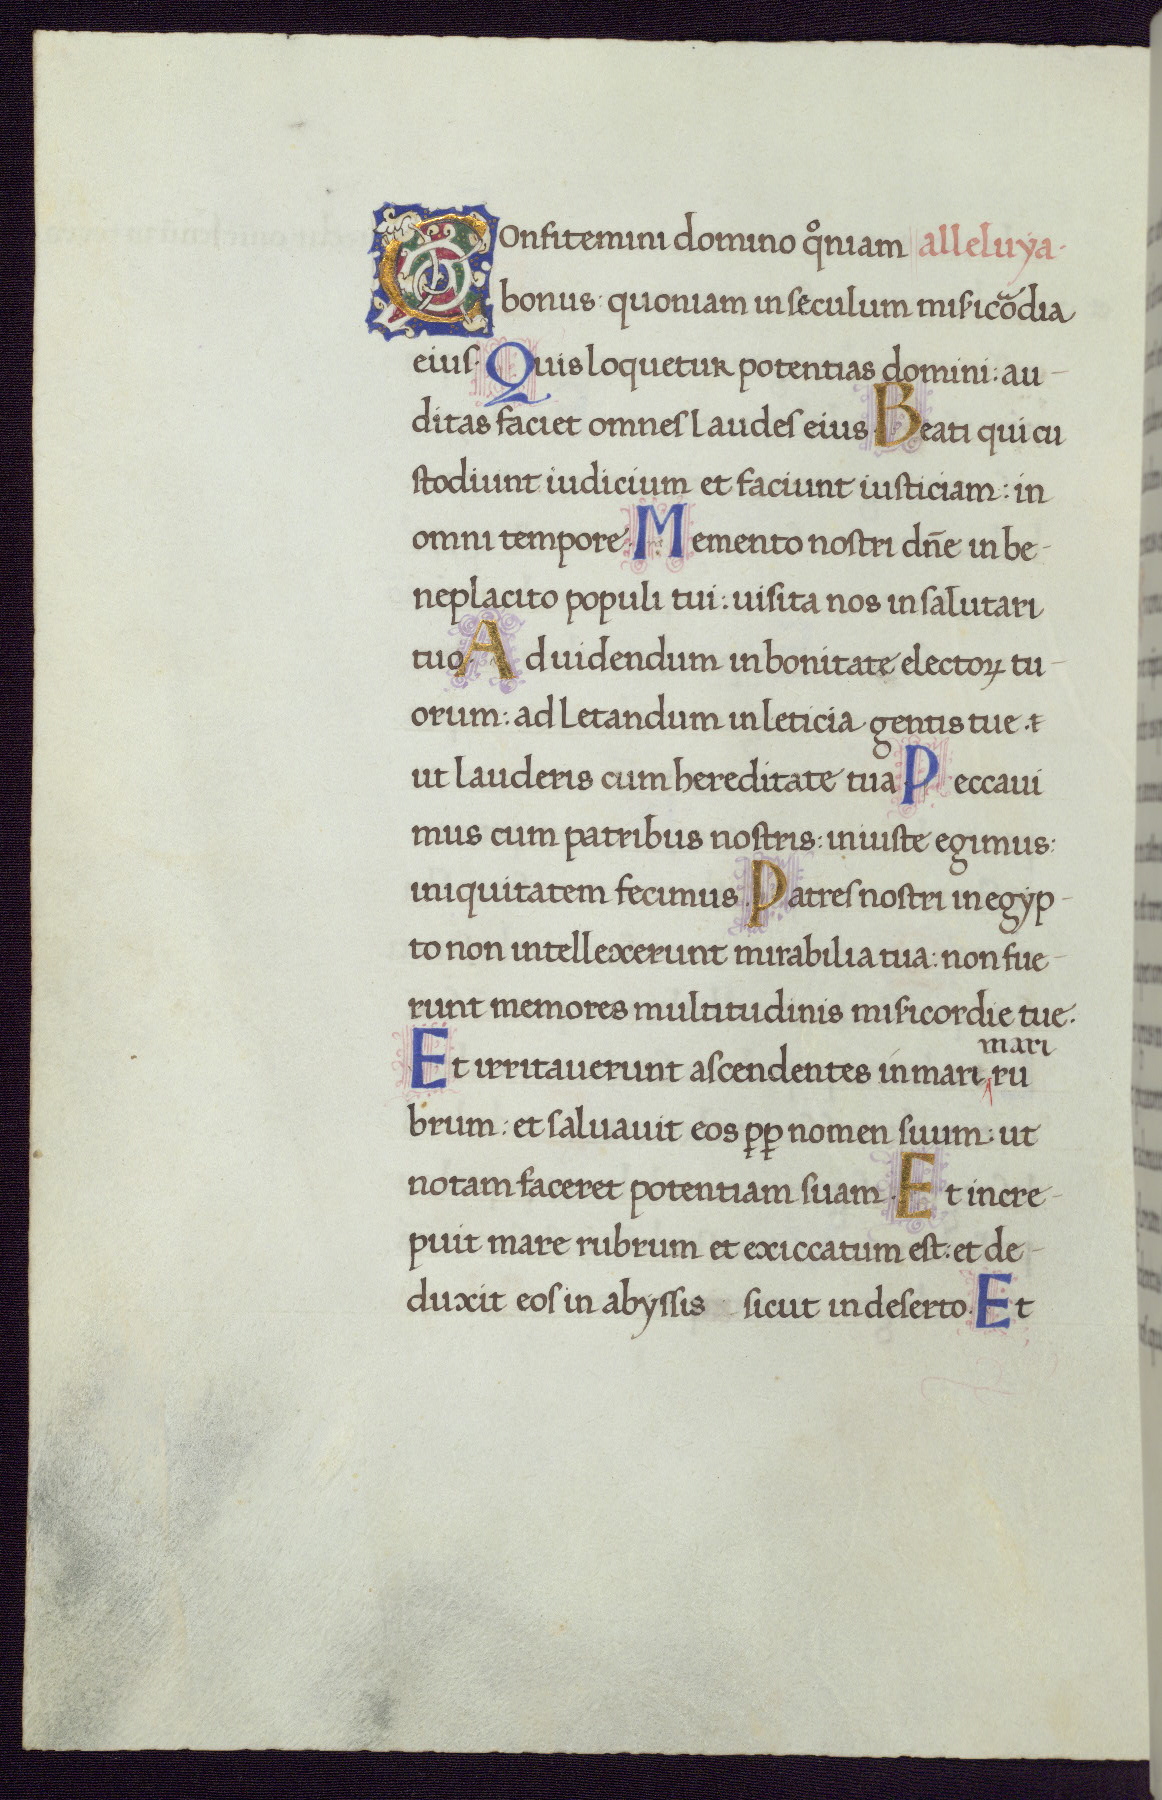 Confitemini domino qͦniam alleluya.
bonus: quoniam in seculum misicōdia
eius. Quis loquetur potentias domini: au-
ditas faciet omnes laudes eius. Beati qui cu
stodiunt iudicium et faciunt iusticiam: in
omni tempore. Memento nostri dn̄e in be-
neplacito populi tui: uisita nos in salutari
tuo. Ad uidendum in bonitate electoꝝ tu-
orum: ad letandum in leticia gentis tue. ⁊
ut lauderis cum hereditate tua Peccaui
mus cum patribus nostris: iniuste egimus:
iniquitatem fecimus. Patres nostri in egyp-
to non intellexerunt mirabilia tua: non fue-
runt memores multitudinis misicordie tue.
mari
Et irritauerunt ascendentes in mari ru
brum: et saluauit eos ꝓꝑ nomen suum: ut
notam faceret potentiam suam. Et incre-
puit mare rubrum et exiccatum est: et de-
duxit eos in abyssis sicut in deserto. Et